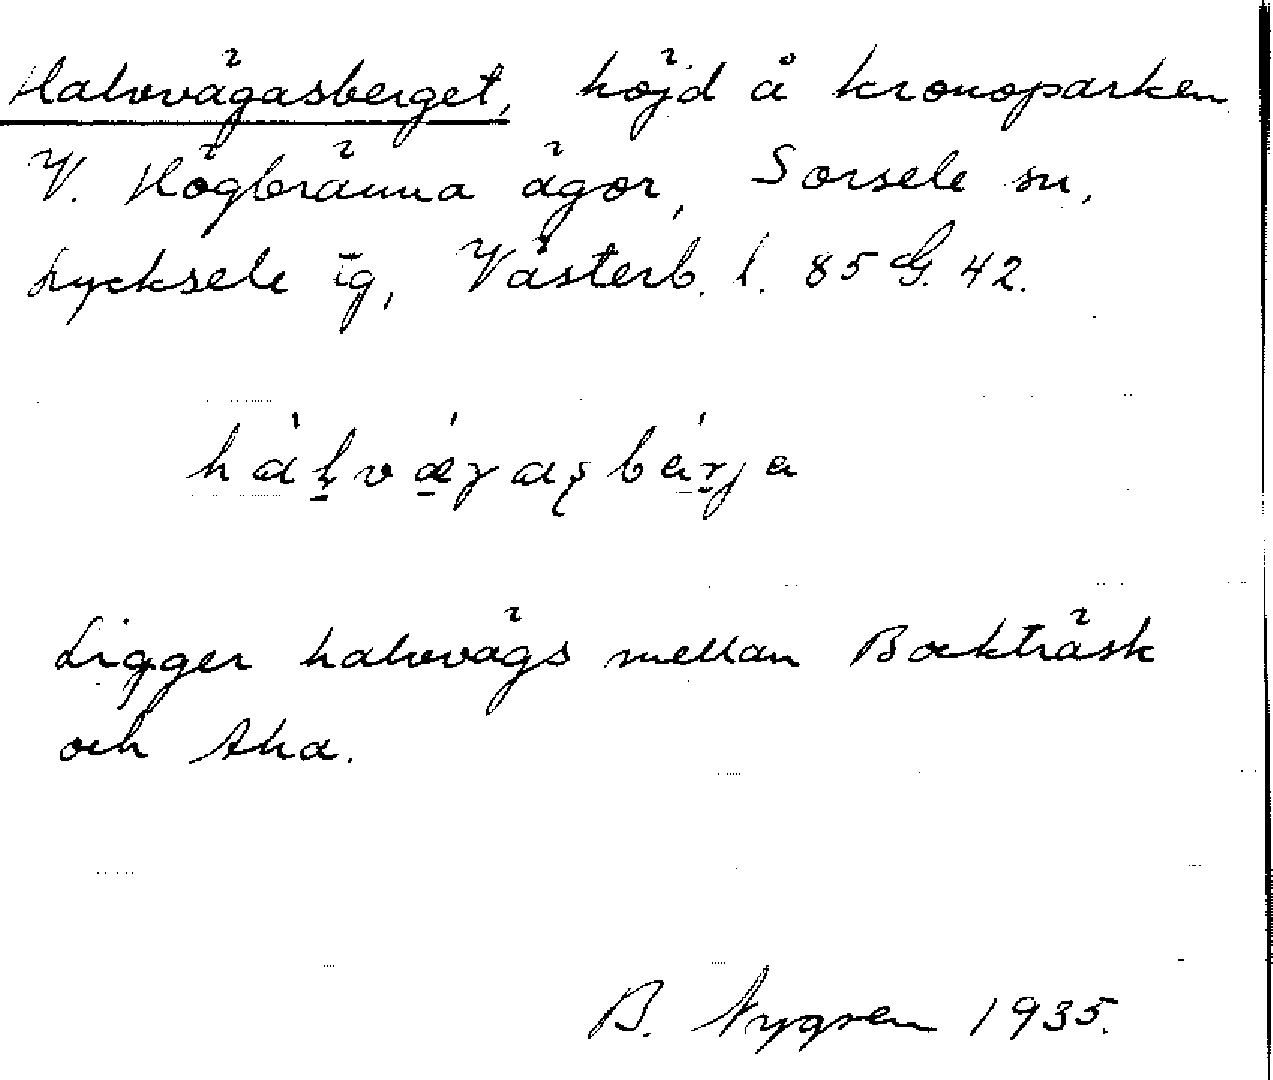 Halvvägasberget, höjd å kronoparken
V. Högbränna ägor, Sorsele sn,
Lycksele tg, Västerb. l. 85 G. 42.
Ligger halvvägs mellan Bockträsk
och Aha.
B. Nygren 1935.